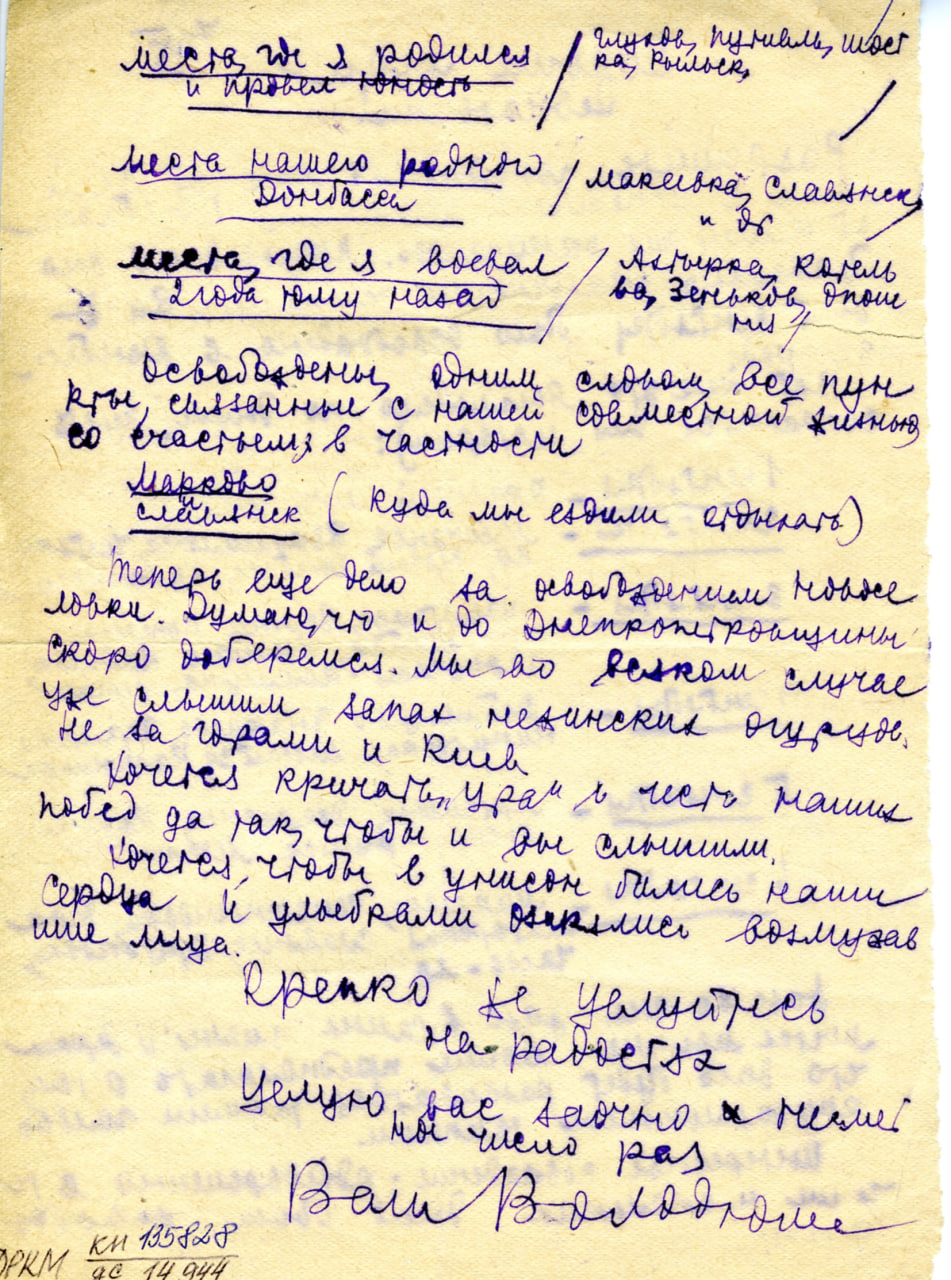 места, где я родился / Глухов, Путивль, Шост
и провел юность ка, Рыльск, /
места нашего родного / Макеевка, Славянск,
Донбасса и др /
места, где я воевал / Ахтырка, Котель
2 года тому назад ва, Зеньков, Опош
ня /
Освобождены, одним словом, все пун
кты, связанные с нашей совместной жизнью,
со счастьем; в частности
Марково
и
Славянск (куда мы ездили отдыхать)
Теперь еще дело за освобождением Новосе
ловки. Думаю, что и до Днепропетровщины
скоро доберемся. Мы во всяком случае
уже слышим запах нежинских огурцов.
Не за горами и Киев
Хочется кричать „ура“ в честь наших
побед да так, чтобы и вы слышили.
Хочется, чтобы в унисон бились наши
сердца и улыбками озарялись возмужав
шие лица.
Крепко же целуйтесь
на радостях
Целую вас заочно и несмет
ное число раз
Ваш Володюша
ДРКМ КП 135828
ДС 14944